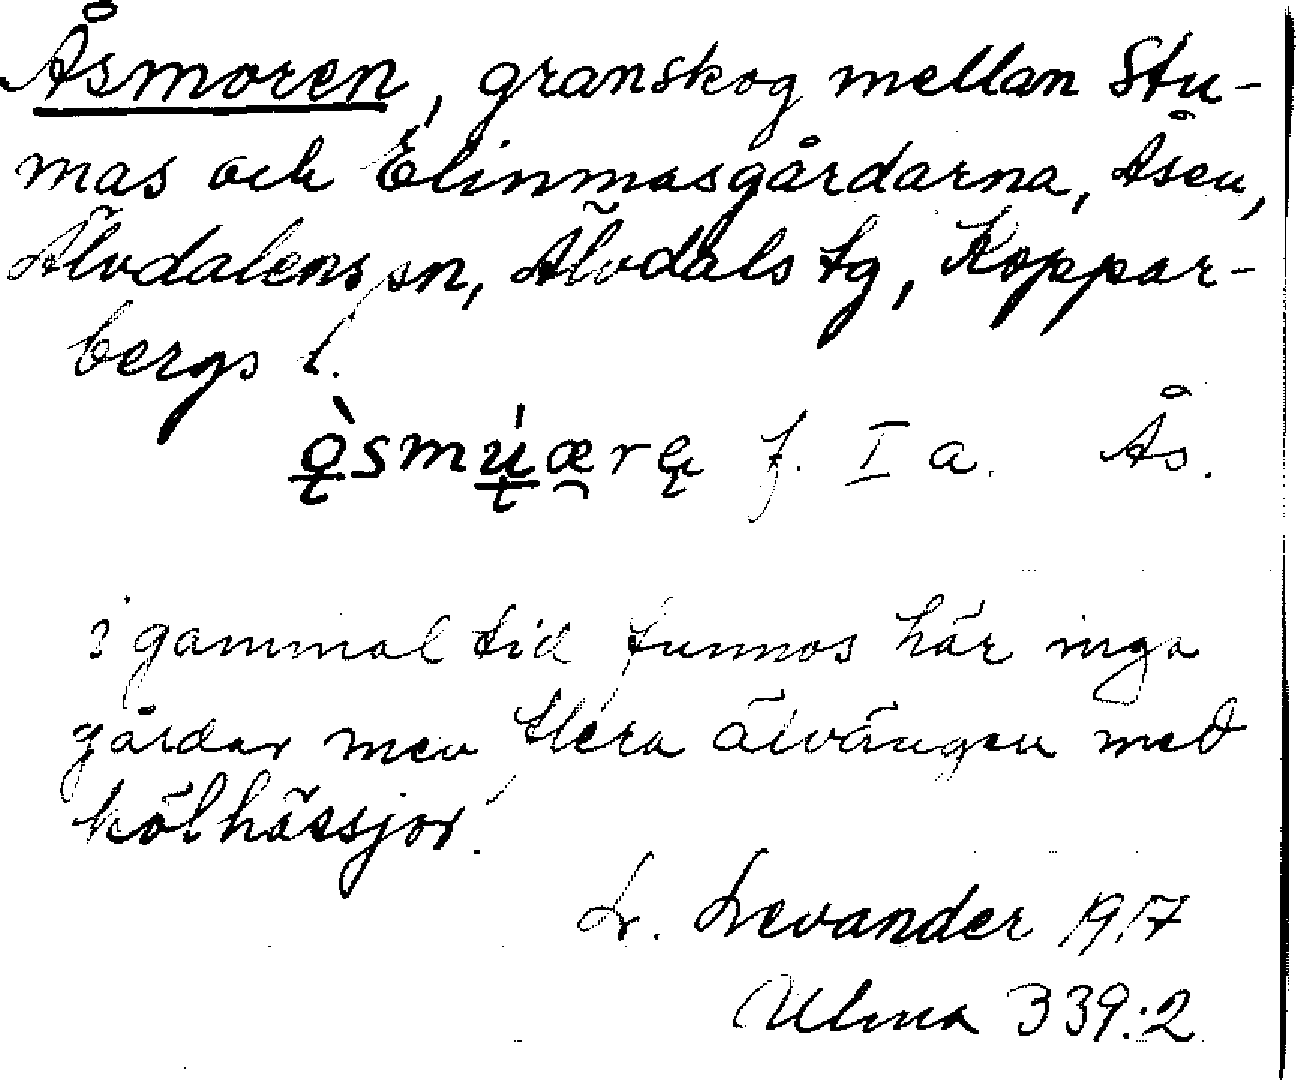 Åsmoren, granskog mellan Stu-
mas och Elinmasgårdarna, Åsen,
Älvdalens sn, Älvdals tg, Koppar-
bergs l.
ǫ̀smų́ærę f. I a. Ås.
i gammal tid funnos här inga
gårdar men flera älvängen med
kölhässjor.
L. Levander 1917
Ulma 339:2